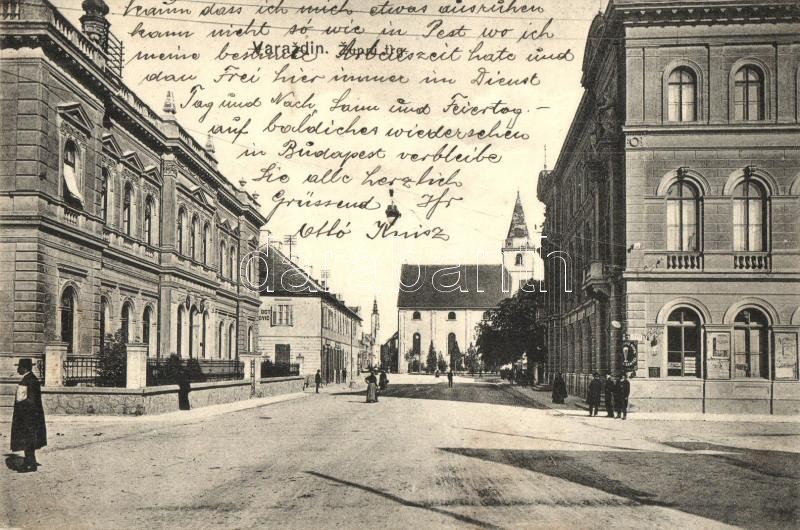 kaum dass ich mich etwas ausruhen
kann nicht so wie in Pest wo ich
meine bestimmte Arbeitszeit hatte und
dan Frei hier immer im Dienst
Varaždin. Župni trg.
Tag und Nach, Sam und Feiertag. —
auf baldiches wiedersehen
in Budapest verbleibe
Sie alle herzlich
Grüssend Ihr
Ottó
darabanth.com